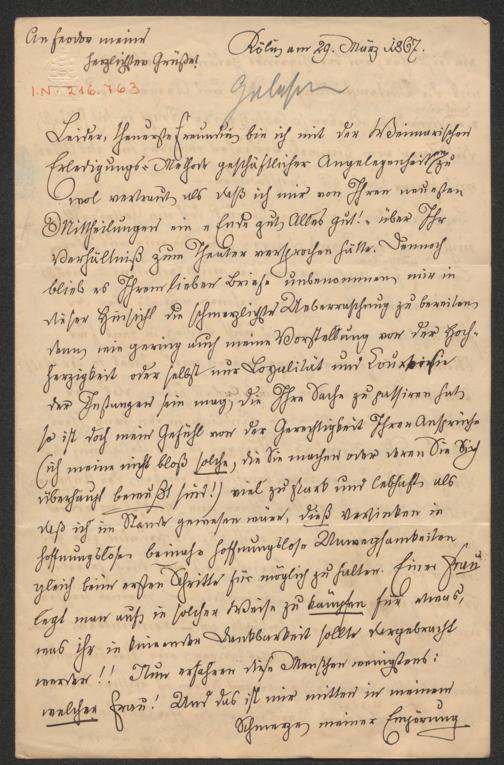 An Feodor meine
herzlichsten Grüße!
Köln, am 29. März 1867.
I.N. 216.763
Gelesen
Leider, theuerste Freundin, bin ich mit der Weimarischen
Erledigungs-Methode geschäftlicher Angelegenheiten zu
wol vertraut, als daß ich mir von Ihren neuesten
Mittheilungen ein „Ende gut, Alles gut!“ über Ihr
Verhältniß zum Theater versprochen hätte. Dennoch
blieb es Ihrem lieben Briefe unbenommen, mir in
dieser Hinsicht die schmerzlichste Ueberraschung zu bereiten,
denn, wie gering auch meine Vorstellung von der Hoch-
herzigkeit oder selbst nur Loyalität und Courtoisie
der Instanzen sein mag, die Ihre Sache zu passiren hat,
so ist doch mein Gefühl von der Gerechtigkeit Ihrer Ansprüche
(ich meine nicht bloß solche, die Sie machen oder deren Sie Sich
überhaupt bewußt sind!) viel zu stark und lebhaft, als
daß ich im Stande gewesen wäre, dieß Versinken in
hoffnungslose, beinahe hoffnungslose Unwegsamkeiten
gleich beim ersten Schritte für möglich zu halten. Einer Frau
legt man auf, in solcher Weise zu kämpfen für etwas,
was ihr in Dankbarkeit sollte dargebracht
werden!! Nun erfahren diese Menschen wenigstens:
welcher Frau! Und das ist mir mitten in meinem
Schmerze, meiner Empörung